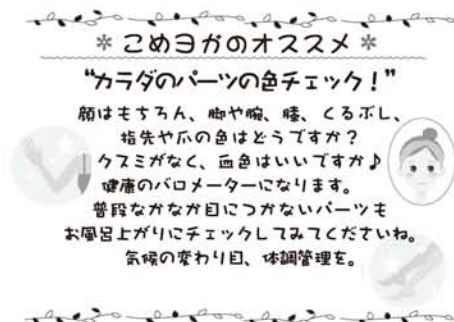 * こめヨガのオススメ *
“カラダのパーツの色チェック！”
顔はもちろん、脚や腕、膝、くるぶし、
指先や爪の色はどうですか？
クスミがなく、血色はいいですか♪
健康のバロメーターになります。
普段なかなか目につかないパーツも
お風呂上がりにチェックしてみてくださいね。
気候の変わり目、体調管理を。